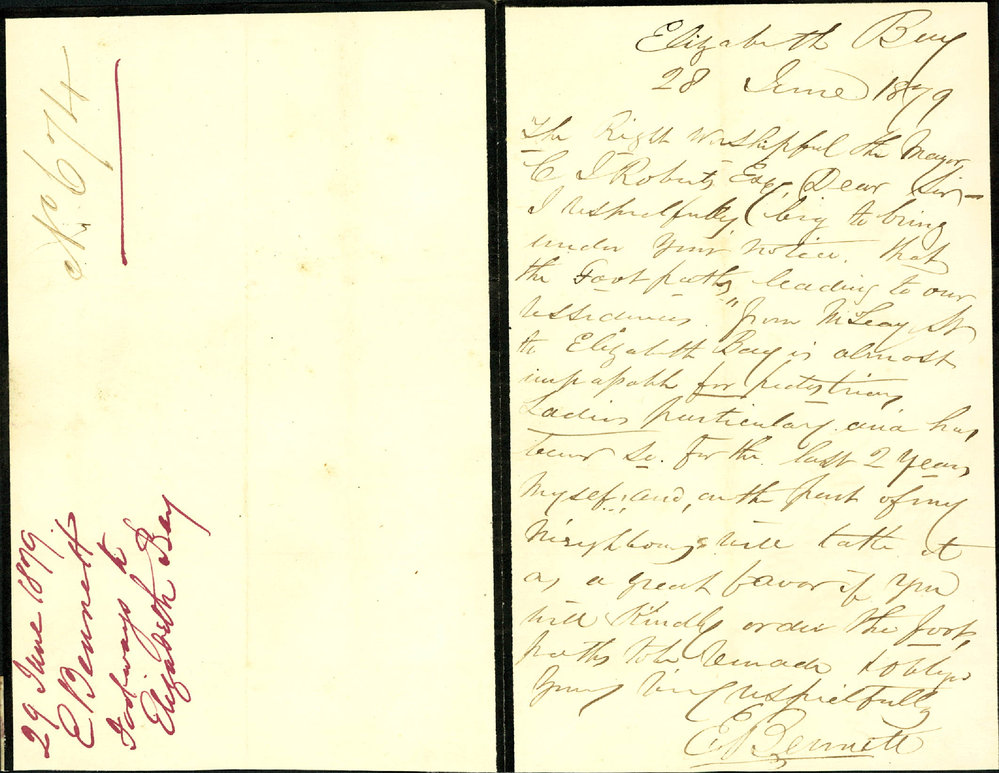 No 674
29 June 1879
E Bennett
Footways to
Elizabeth Bay
Elizabeth Bay
28 June 1879
The Right Worshipful the Mayor,
C J Roberts Esq, Dear Sir—
I respectfully beg to bring
under Your notice. that
the Foot paths leading to our
residences. from McLeay St
to Elizabeth Bay is almost
impassable for pedestrians,
Ladies particulary and has
been so. For the last 2 Years,
Myself, and, on the part of my
Neighbours will take it
as a great favor if you
will Kindly order the foot,
paths to be remade &
Yours very respectfully
E Bennett